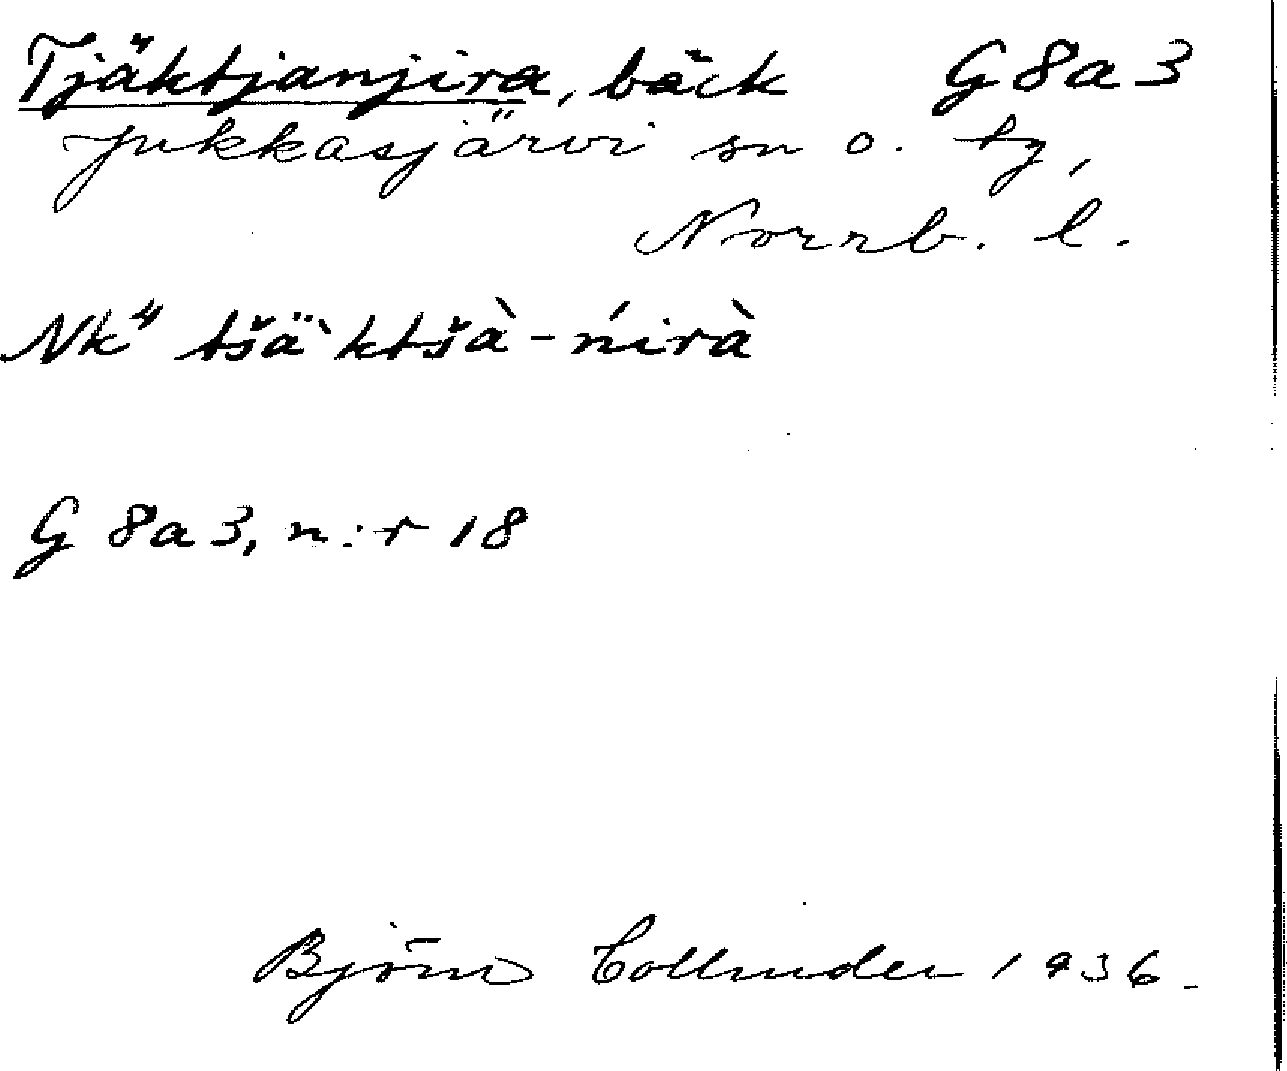 Tjäktjanjira, bäck G8a3
Jukkasjärvi sn o. tg,
Norrb. l.
Nk⁴ tšä̀ktšà-ńirà
G 8a3, n:r 18
Björn Collinder 1936.